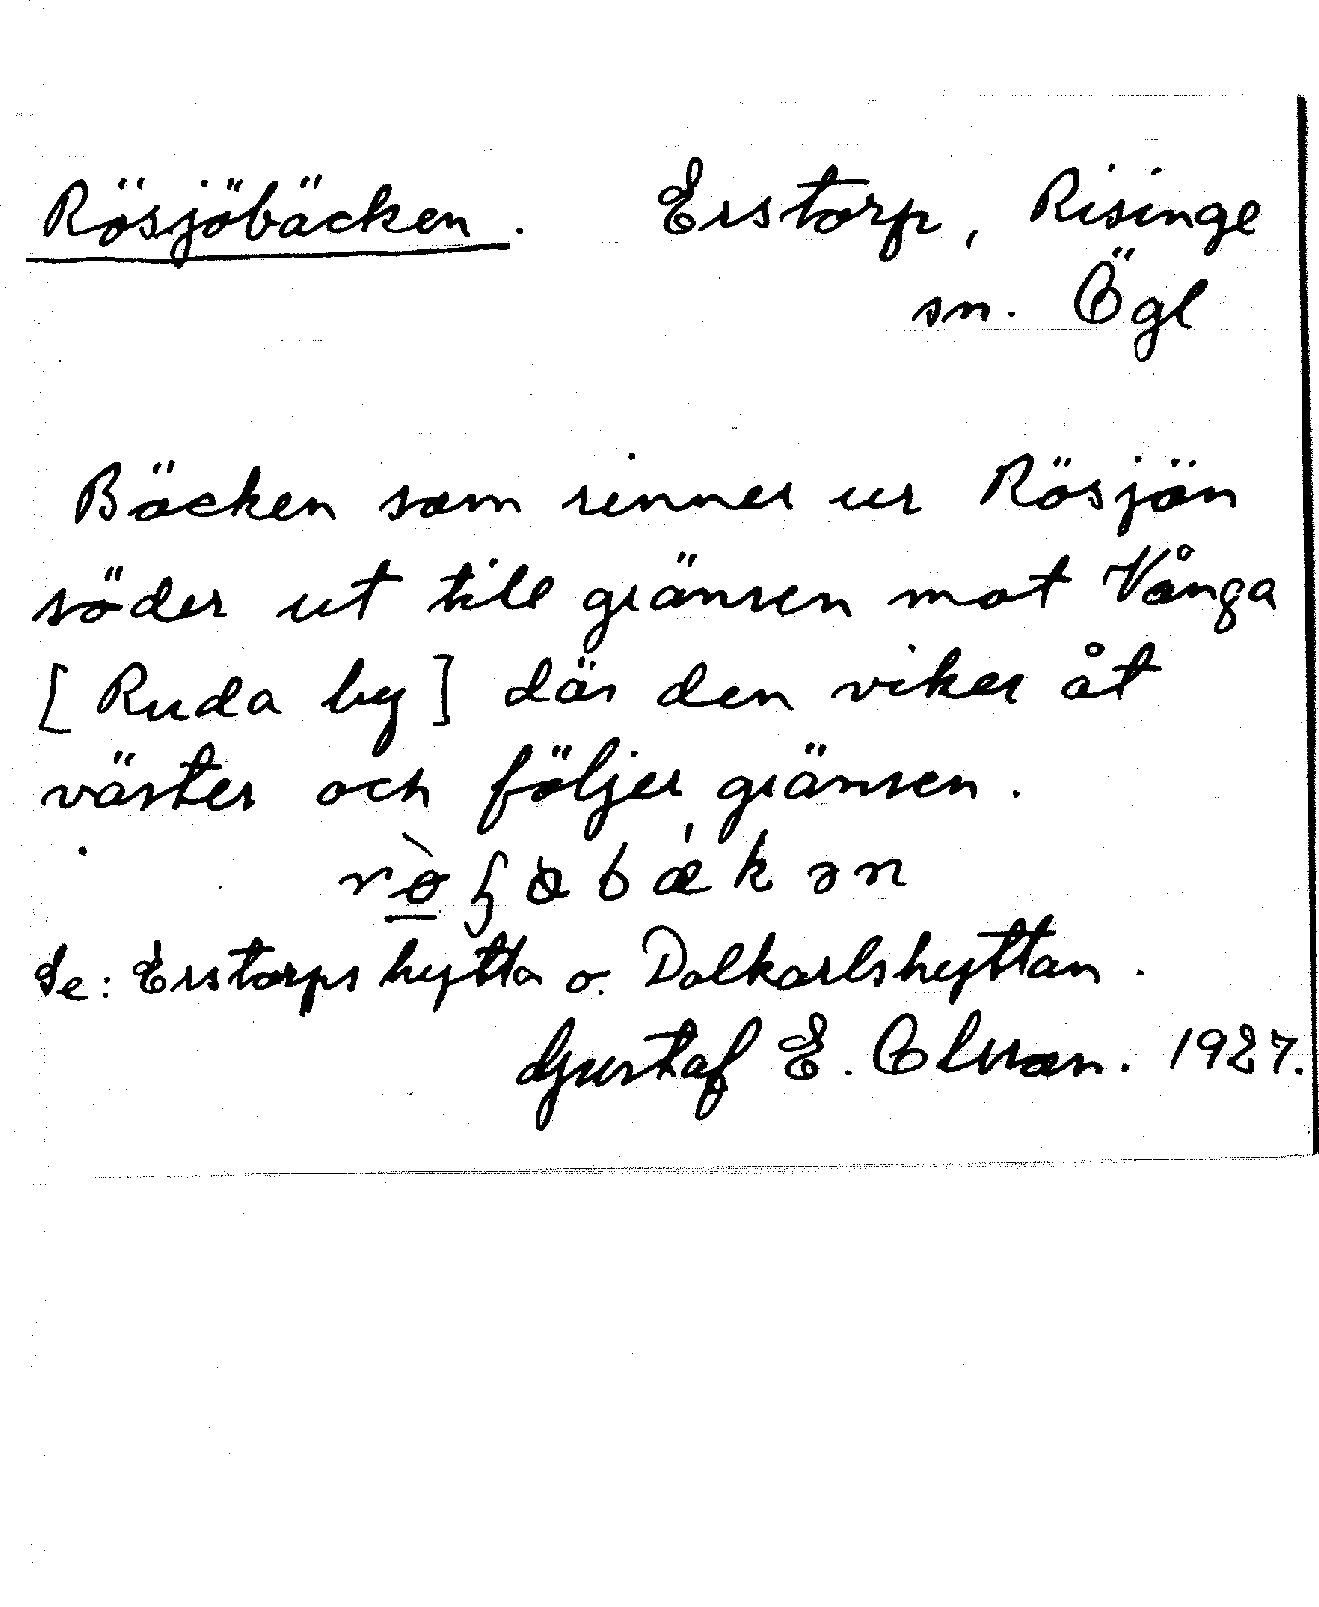 Rösjöbäcken. Erstorp, Risinge
sn. Ögl
Bäcken som rinner ur Rösjön
söder ut till gränsen mot Vånga
[Ruda by] där den viker åt
väster och följer gränsen.
Se: Erstorpshytta o. Dalkarlshyttan.
Gustaf E. 1927.